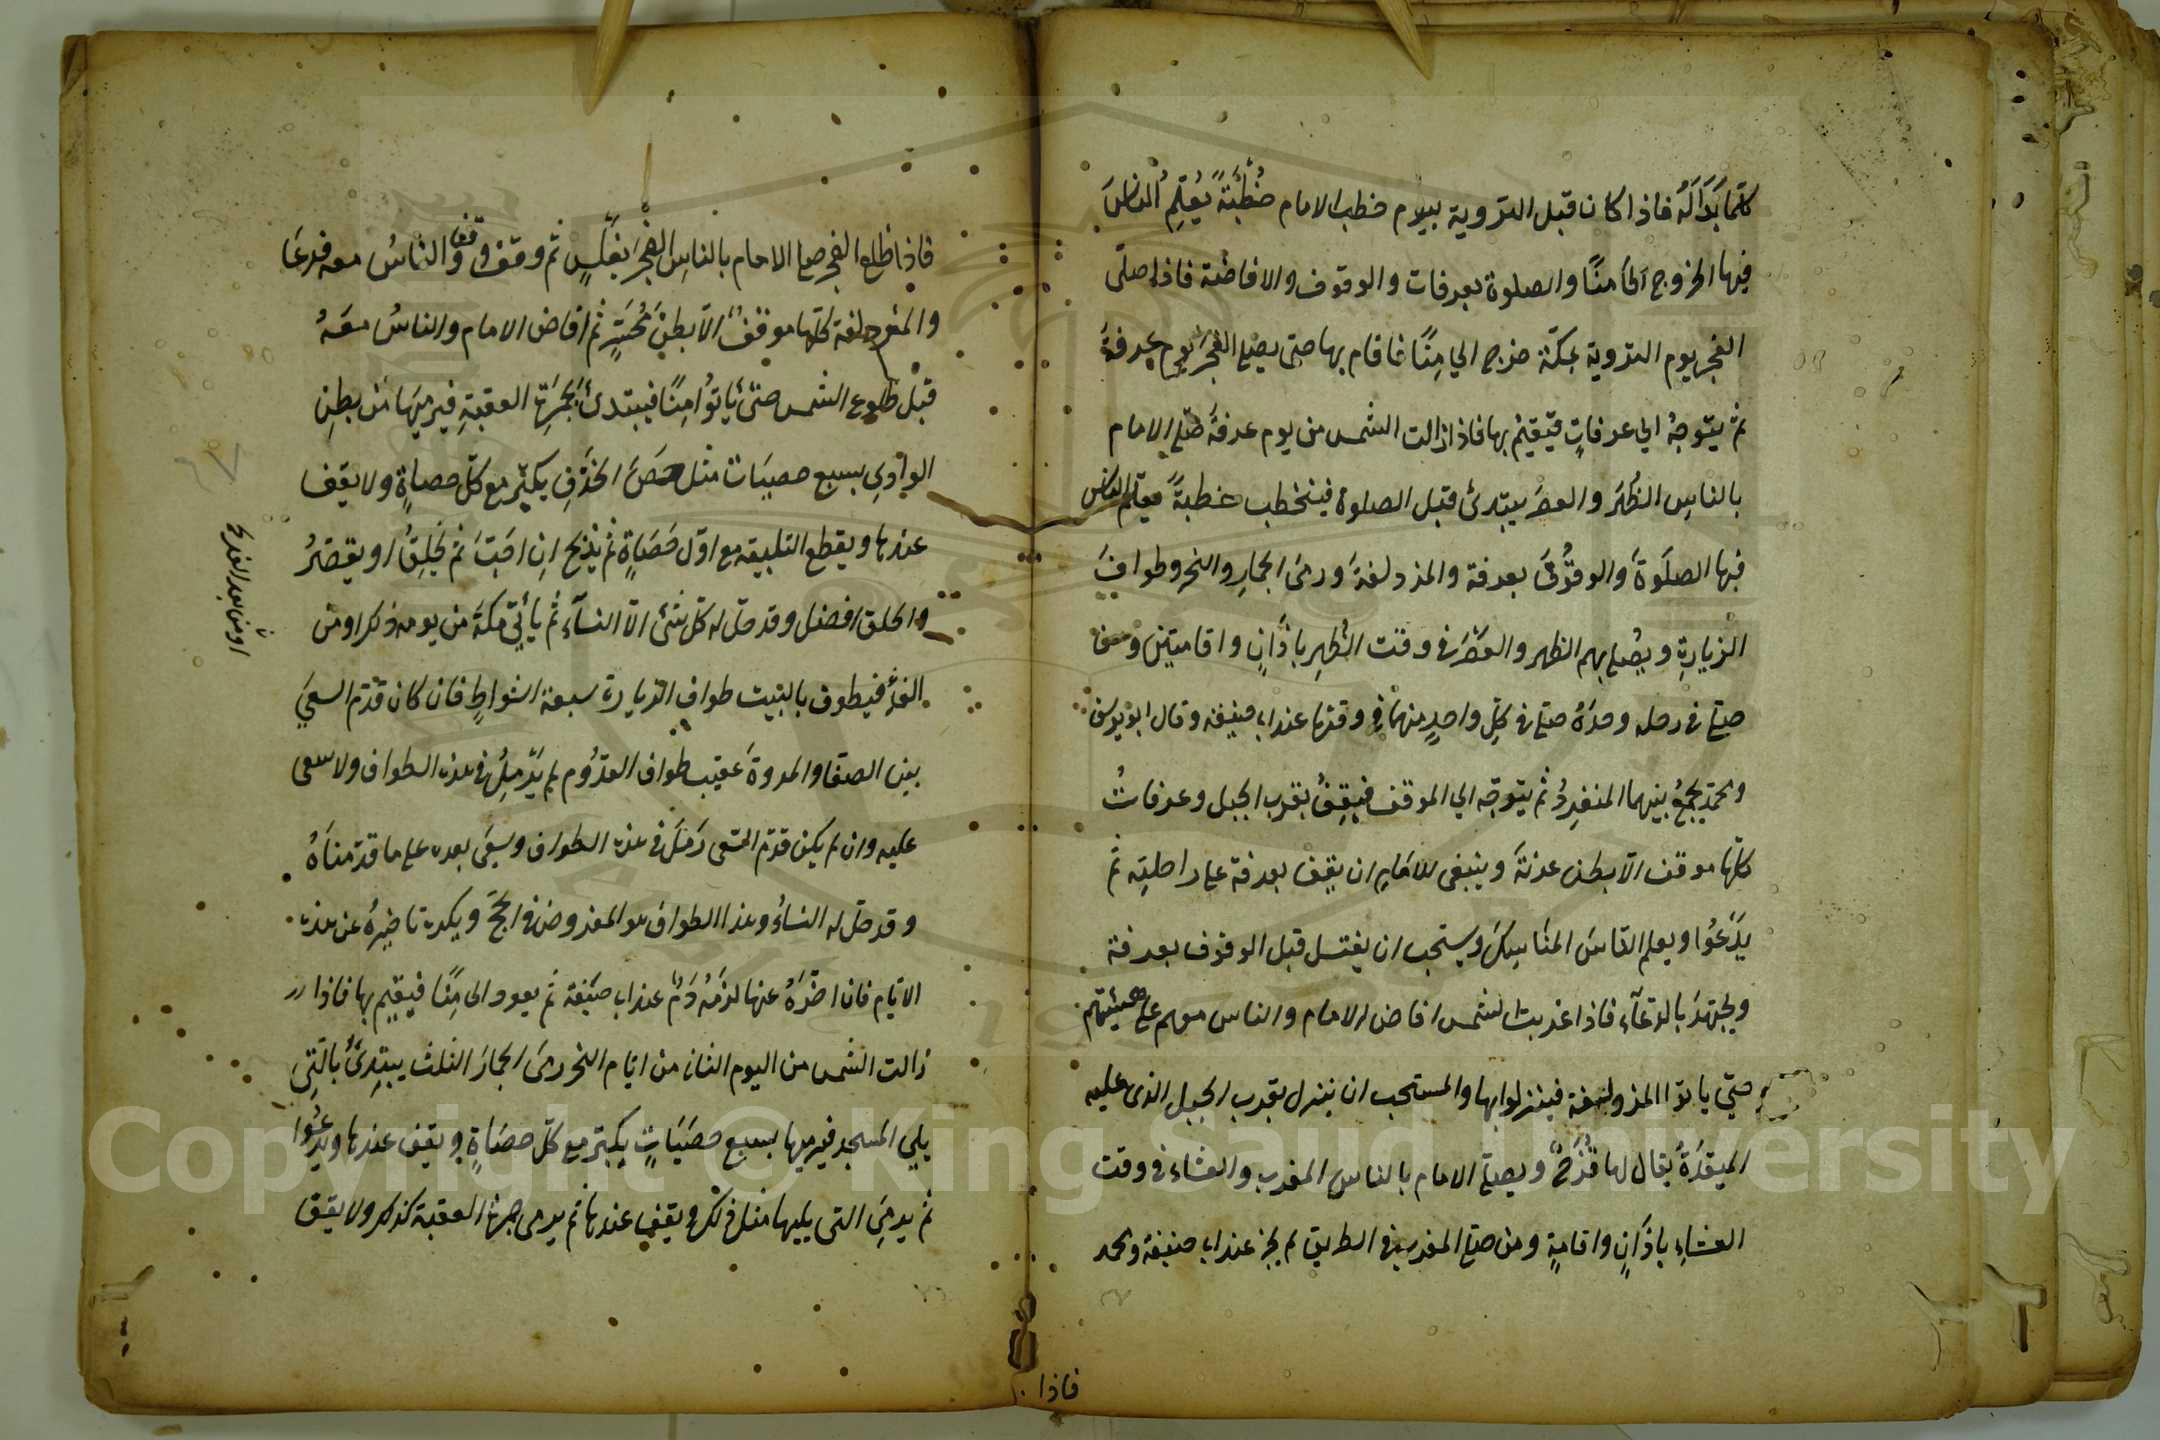 كلّما بَدَا لَهُ فاذا كان قبل التروية بيوم خطب الامام خُطْبَةً يُعَلِّمُ الناسَ
فيها الخروج الى مِنًا والصلوة بعرفات والوقوف والافاضة فاذا صلّى
الفجر يوم التروية بمكّة خرج الي مِنًا فاقام بها حتى يصلي الفجرَ يوم عرفةَ
ثم يتوجهُ الي عرفاتٍ فيقيم بها فاذا زالت الشمس من يوم عرفة صلّى الامام
بالناسِ الظُهْرَ والعصرَ يبتدئ قبل الصلوة فيخطب خطبةً يعلم الناس
فيها الصلَوةَ والوقُوفَ بعرفة والمزدلفةَ ورمىَ الجمارِ والنحر وطوافَ
الزيارةِ ويصلي بهم الظهر والعَصْرَ في وقت الظهرِ باذَانٍ واقامتين ومن
صلي في رحله وحدَهُ صلي في كلِّ واحدٍ منهما في وقتها عند ابي حنيفة وقال ابو يوسف
ومحمّد يجمعُ بينهما المنفردُ ثم يتوجّه الي الموقف فيقفُ بقرب الجبل وعرفاتُ
كلّها موقف الّا بطن عرنةَ وينبغى للامَامِ ان يقف بعرفة علي راحلتِه ثم
يدَعُوا ويعلم الناسَ المنَاسِكَ ويستحب ان يغتسل قبل الوقوف بعرفة
ويجتهدَ بالدعآء فاذا غربت الشمس افاض الامام والناس معهم علي هيئتهم
حتّي ياتوا المزدلفة فينزلوا بها والمستحب ان ينزل بقرب الجبل الذى عليه
الميقدَةُ يقال لها قُزَحُ ويصلّي الامام بالناس المغرب والعشاء في وقت
العشاءِ باذَانٍ واقامةٍ ومن صلّي المغرب في الطريق لم يجز عند ابي حنيفة ومحمد
فاذا
فاذا طلع الفجر صلي الامام بالناسِ الفجرَ بغلَسٍ ثم وقف ووقف الناسُ معه فدعَا
والمزدلفة كلّها موقفٌ الّا بطنَ مُحَسِّرٍ ثم افاض الامام والناسُ معَهُ
قبل طلوع الشمس حتّى يأتُوا مِنًا فيبتدئ بجمرةِ العقبةِ فيرميهَا من بطنِ
الوادِي بسبع حصيَات مثل حصَى الخذَفِ يكبّر مع كلّ حصاةٍ ولا يقف
عندها ويقطع التلبية مع اوّل حَصَاةٍ ثم يذبح انِ احَبَّ ثم يحَلِقُ او يقصّرُ
والحلق افضل وقد حلّ له كلّ شئ الّا النسآء ثم يأتِي مكةَ من يومه ذلك او من
الغدِ فيطوف بالبيت طواف الزيارة سبعة اشواطٍ فان كان قدّم السعيَ
بين الصفا والمروةَ عَقيب طواف القدُوم لم يَرْمِلُ في هذه الطواف ولا سعى
عليه وان لم يكن قدّم السعى رَمَلَ في هذه الطواف وسَعَى بعده علي ما قدّمنَاهُ
وقد حلّ له النساءُ وهذا الطواف هو المفروض في الحجّ ويكره تاخيرُهُ عن هذه
الايّام فان اخّرَهُ عنها لزمَهُ دَمٌ عند ابي حنَيفة ثم يعود الى مِنًا فيقيم بها فاذا
زالت الشمس من اليوم الثاني من ايّام النحر رمىَ الجمارَ الثلث يبتدِئَ بالّتِى
يلي المسجد فيرميها بسبع حصَيَاتٍ يكبّر مع كلّ حصَاةٍ ويقف عندها ويدعُوا
ثم يرمىَ التى يليها مثل ذلك ويقف عندها ثم يرمى جمرة العقبة كذلك ولا يقف
او من بعد الغد ح
Copyright © King Saud University